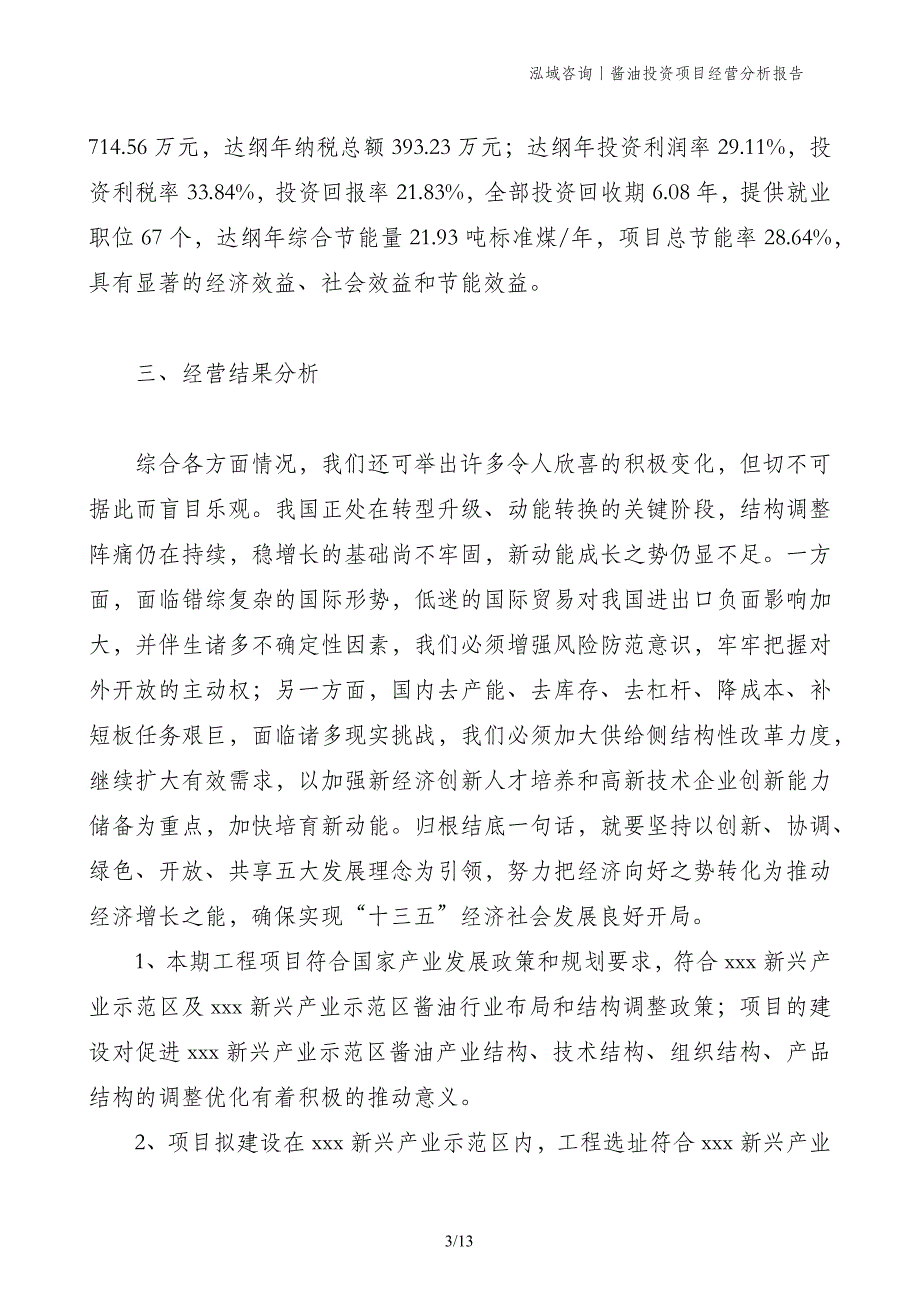 泓域咨询|酱油投资项目经营分析报告
714.56 万元，达纲年纳税总额 393.23 万元；达纲年投资利润率 29.11%，投
资利税率 33.84%，投资回报率 21.83%，全部投资回收期 6.08 年，提供就业
职位 67 个，达纲年综合节能量 21.93 吨标准煤/年，项目总节能率 28.64%，
具有显著的经济效益、社会效益和节能效益。
三、经营结果分析
综合各方面情况，我们还可举出许多令人欣喜的积极变化，但切不可
据此而盲目乐观。我国正处在转型升级、动能转换的关键阶段，结构调整
阵痛仍在持续，稳增长的基础尚不牢固，新动能成长之势仍显不足。一方
面，面临错综复杂的国际形势，低迷的国际贸易对我国进出口负面影响加
大，并伴生诸多不确定性因素，我们必须增强风险防范意识，牢牢把握对
外开放的主动权；另一方面，国内去产能、去库存、去杠杆、降成本、补
短板任务艰巨，面临诸多现实挑战，我们必须加大供给侧结构性改革力度，
继续扩大有效需求，以加强新经济创新人才培养和高新技术企业创新能力
储备为重点，加快培育新动能。归根结底一句话，就要坚持以创新、协调、
绿色、开放、共享五大发展理念为引领，努力把经济向好之势转化为推动
经济增长之能，确保实现“十三五”经济社会发展良好开局。
1、本期工程项目符合国家产业发展政策和规划要求，符合 xxx 新兴产
业示范区及 xxx 新兴产业示范区酱油行业布局和结构调整政策；项目的建
设对促进 xxx 新兴产业示范区酱油产业结构、技术结构、组织结构、产品
结构的调整优化有着积极的推动意义。
2、项目拟建设在 xxx 新兴产业示范区内，工程选址符合 xxx 新兴产业
3/13